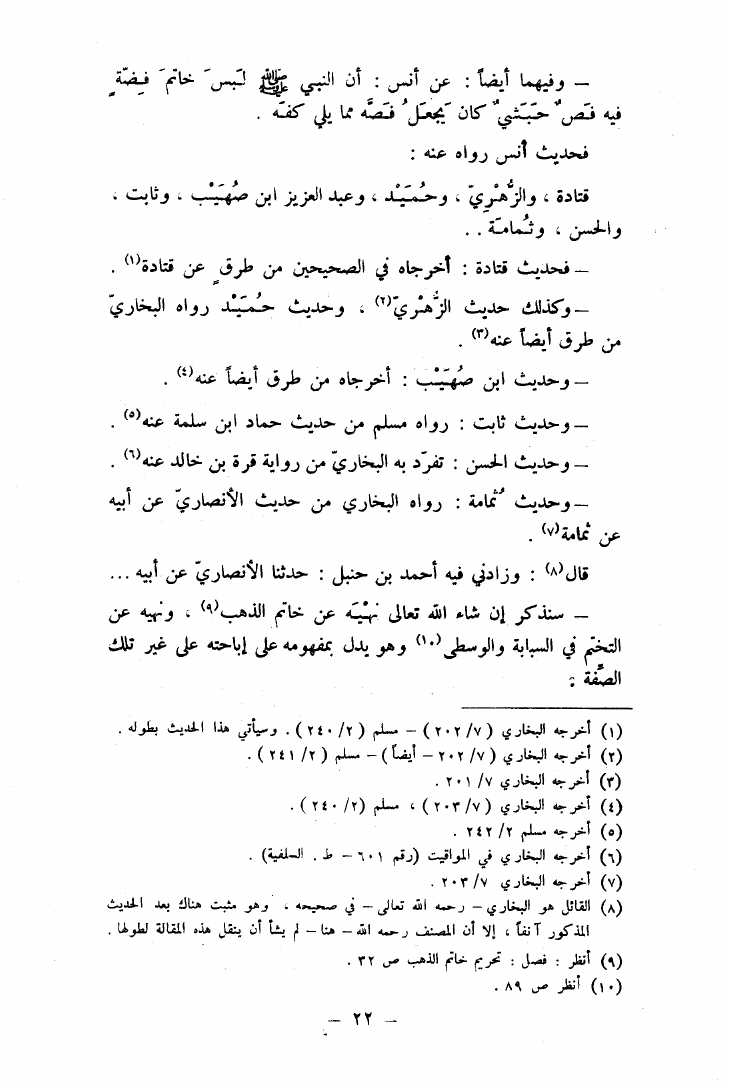 — وفيهما أيضاً : عن أنس : أن النبي ﷺ لَبِسَ خاتَمَ فِضّةٍ
فيه فَصٌ حَبَشيٌ كان يَجعَلُ فَصَّه مما يلي كفّه .
فحديث أنس رواه عنه :
قتادة ، والزُّهْرِيّ ، وحُمَيْد ، وعبد العزيز ابن صُهَيْب ، وثابت ،
والحسن ، وثُمامة . .
— فحديث قتادة : أخرجاه في الصحيحين من طرقٍ عن قتادة(١) .
— وكذلك حديث الزُّهْرِيّ(٢) ، وحديث حُمَيْد رواه البخاريّ
من طرق أيضاً عنه(٣) .
— وحديث ابن صُهَيْب : أخرجاه من طرق أيضاً عنه(٤) .
— وحديث ثابت : رواه مسلم من حديث حماد ابن سلمة عنه(٥) .
— وحديث الحسن : تفرّد به البخاريّ من رواية قرة بن خالد عنه(٦) .
— وحديث ثُمامة : رواه البخاري من حديث الأنصاريّ عن أبيه
عن ثمامة(٧) .
قال(٨) : وزادني فيه أحمد بن حنبل : حدثنا الأنصاريّ عن أبيه ...
— سنذكر إن شاء الله تعالى نهْيَه عن خاتم الذهب(٩) ، ونهيه عن
التختّم في السبابة والوسطى(١٠) وهو يدل بمفهومه على إباحته على غير تلك
الصِّفة :
(١) أخرجه البخاري (٢٠٢/٧) – مسلم (٢٤٠/٢) . وسيأتي هذا الحديث بطوله .
(٢) أخرجه البخاري (٢٠٢/٧ – أيضاً) – مسلم (٢٤١/٢) .
(٣) أخرجه البخاري ٢٠١/٧ .
(٤) أخرجه البخاري (٢٠٣/٧) ، مسلم (٢٤٠/٢) .
(٥) أخرجه مسلم ٢٤٢/٢ .
(٦) أخرجه البخاري في المواقيت (رقم ٦٠١ – ط . السلفية) .
(٧) أخرجه البخاري ٢٠٣/٧ .
(٨) القائل هو البخاري – رحمه الله تعالى – في صحيحه ، وهو مثبت هناك بعد الحديث
المذكور آنفاً ، إلا أن المصنف رحمه الله – هنا – لم يشأ أن ينقل هذه المقالة لطولها .
(٩) أنظر : فصل : تحريم خاتم الذهب ص ٣٢ .
(١٠) أنظر ص ٨٩ .
— ٢٢ —